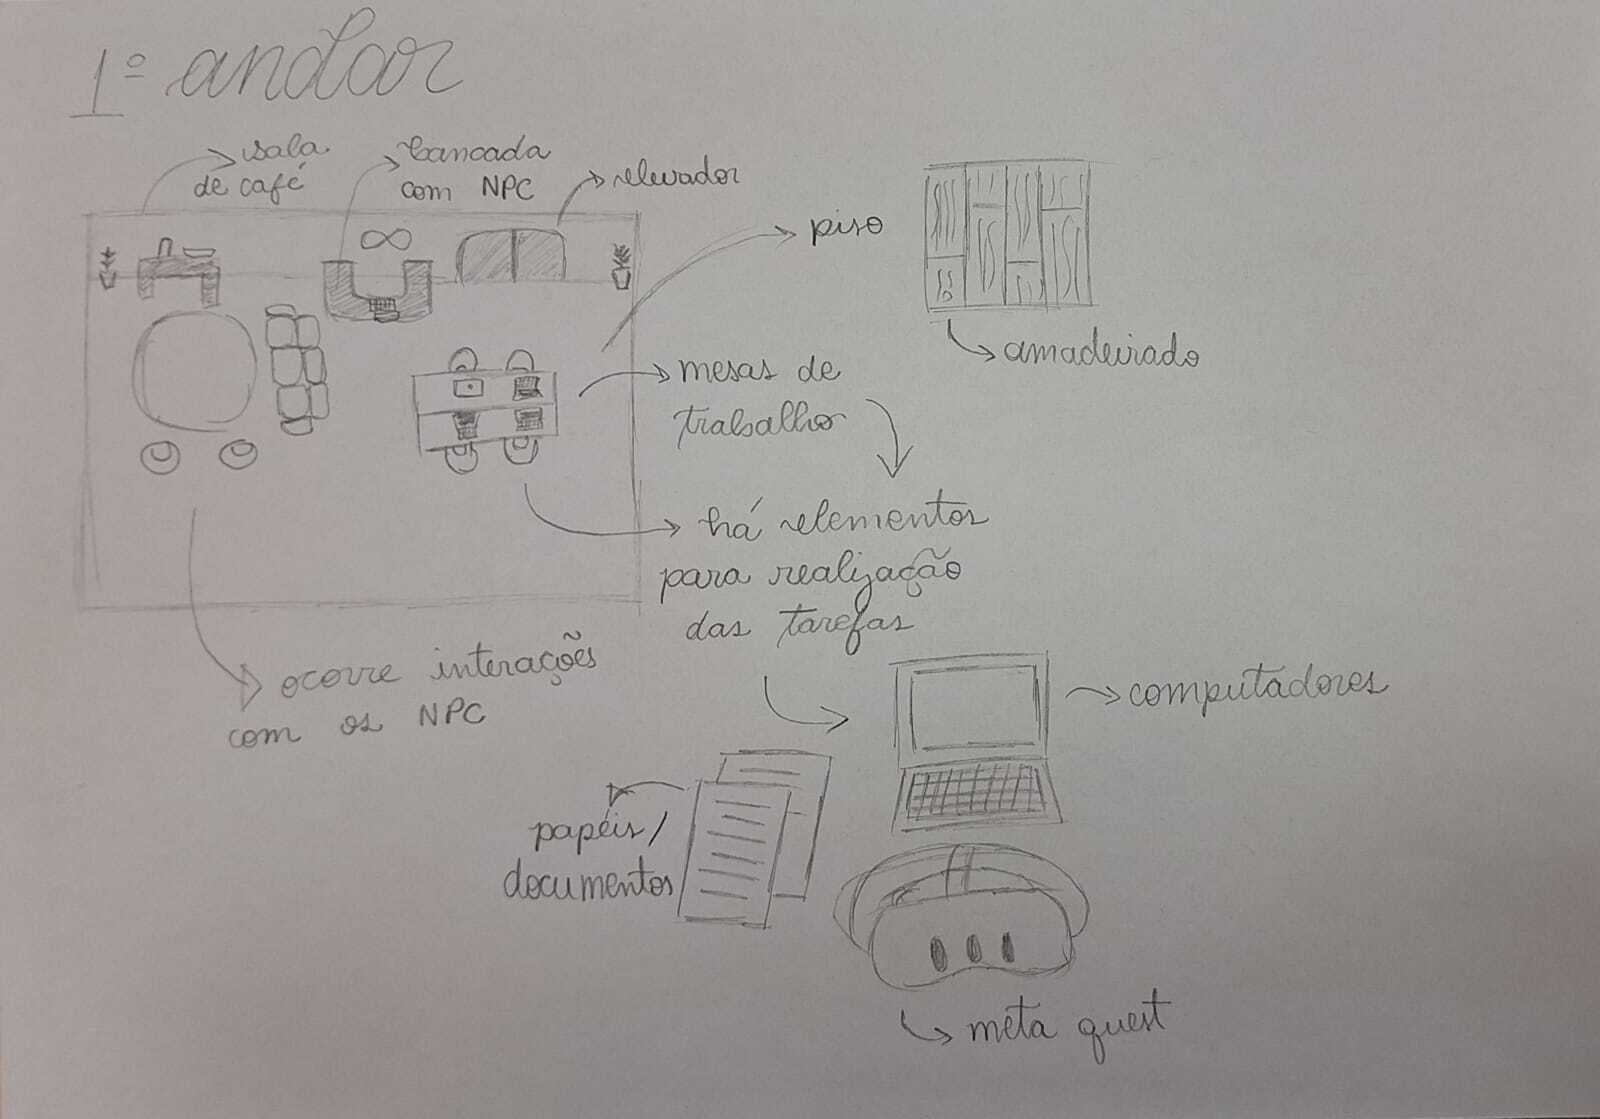 1º andar
sala
de café
bancada
com NPC
elevador
piso
amadeirado
mesas de
trabalho
há elementos
para realização
das tarefas
ocorre interações
com os NPC
computadores
papéis/
documentos
meta quest